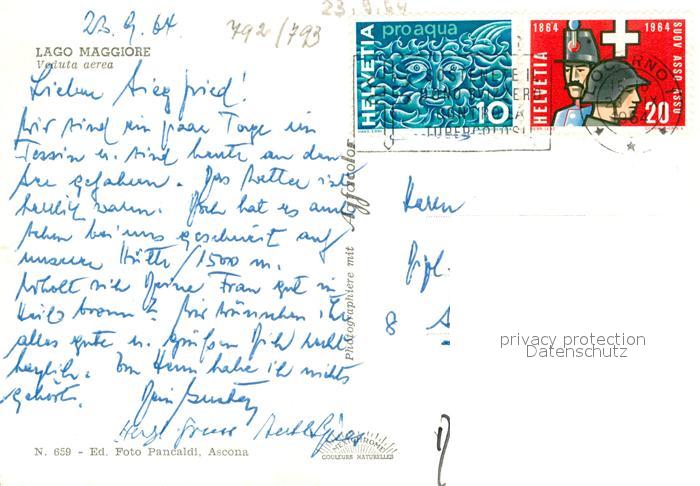 23.9.64
23.9.64 792/793
LAGO MAGGIORE
Veduta aerea
Lieber Siegfried!
Wir sind ein paar Tage im
Tessin u. sind heute an den
See gefahren. Das Wetter ist
herrlich warm. Doch hat es
bei uns geschneit auf
unserer Hütte / 1500 m.
Erholt sich Deine Frau gut in
Heilbronn? Wir wünschen ihr
alles gute u. grüßen Dich recht
herzlich. Von habe ich nichts
gehört. Dein Gustav
Herzl. Grüsse
N. 659 - Ed. Foto Pancaldi, Ascona
MEXICHROME
COULEURS NATURELLES
Photographiere mit Agfacolor
HELVETIA pro aqua 10
1864 1964
HELVETIA
SUOV ASSO ASSU
20
SOSTENETE I
CONTRO LA
TUBERCOLOSI
LOCARNO 1
Herrn
Dipl.
8
privacy protection
Datenschutz